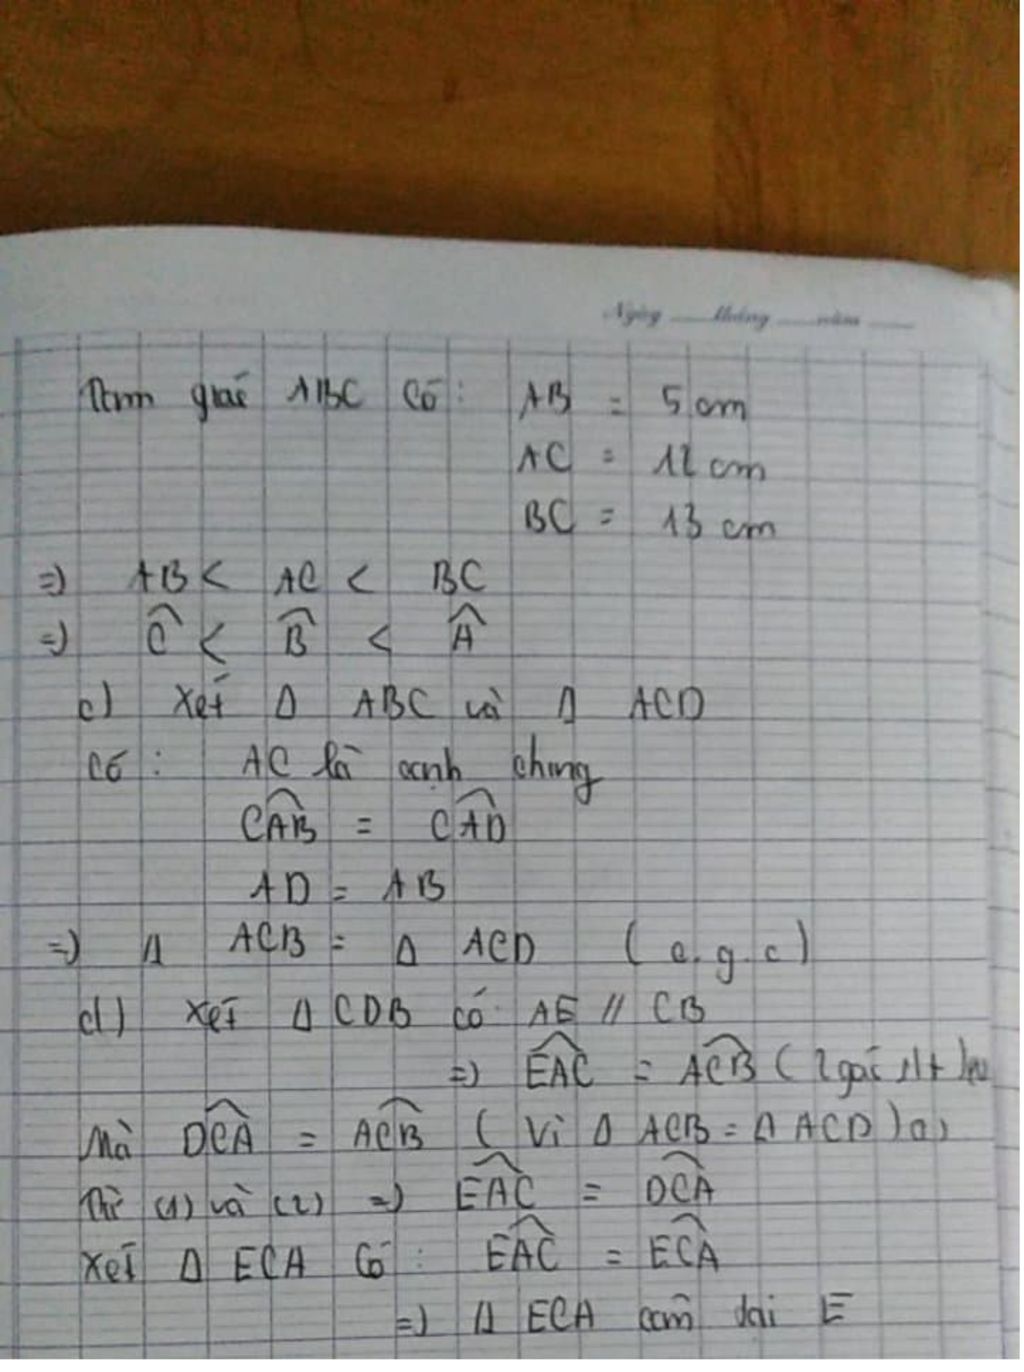 Ngày ...... tháng ...... năm ......
Tam giác ABC có: AB = 5 cm
AC = 12 cm
BC = 13 cm
=) AB < AC < BC
=) Ĉ < B̂ < Â
c) Xét Δ ABC và Δ ACD
Có: AC là cạnh chung
CÂB = CÂD
AD = AB
=) Δ ACB = Δ ACD (c.g.c)
d) Xét Δ CDB có AE // CB
=) EÂC = AĈB (2 góc slt)
Mà DĈA = AĈB (Vì Δ ACB = Δ ACD)
Từ (1) và (2) =) EÂC = DĈA
Xét Δ ECA Có: EÂC = EĈA
=) Δ ECA cân tại E